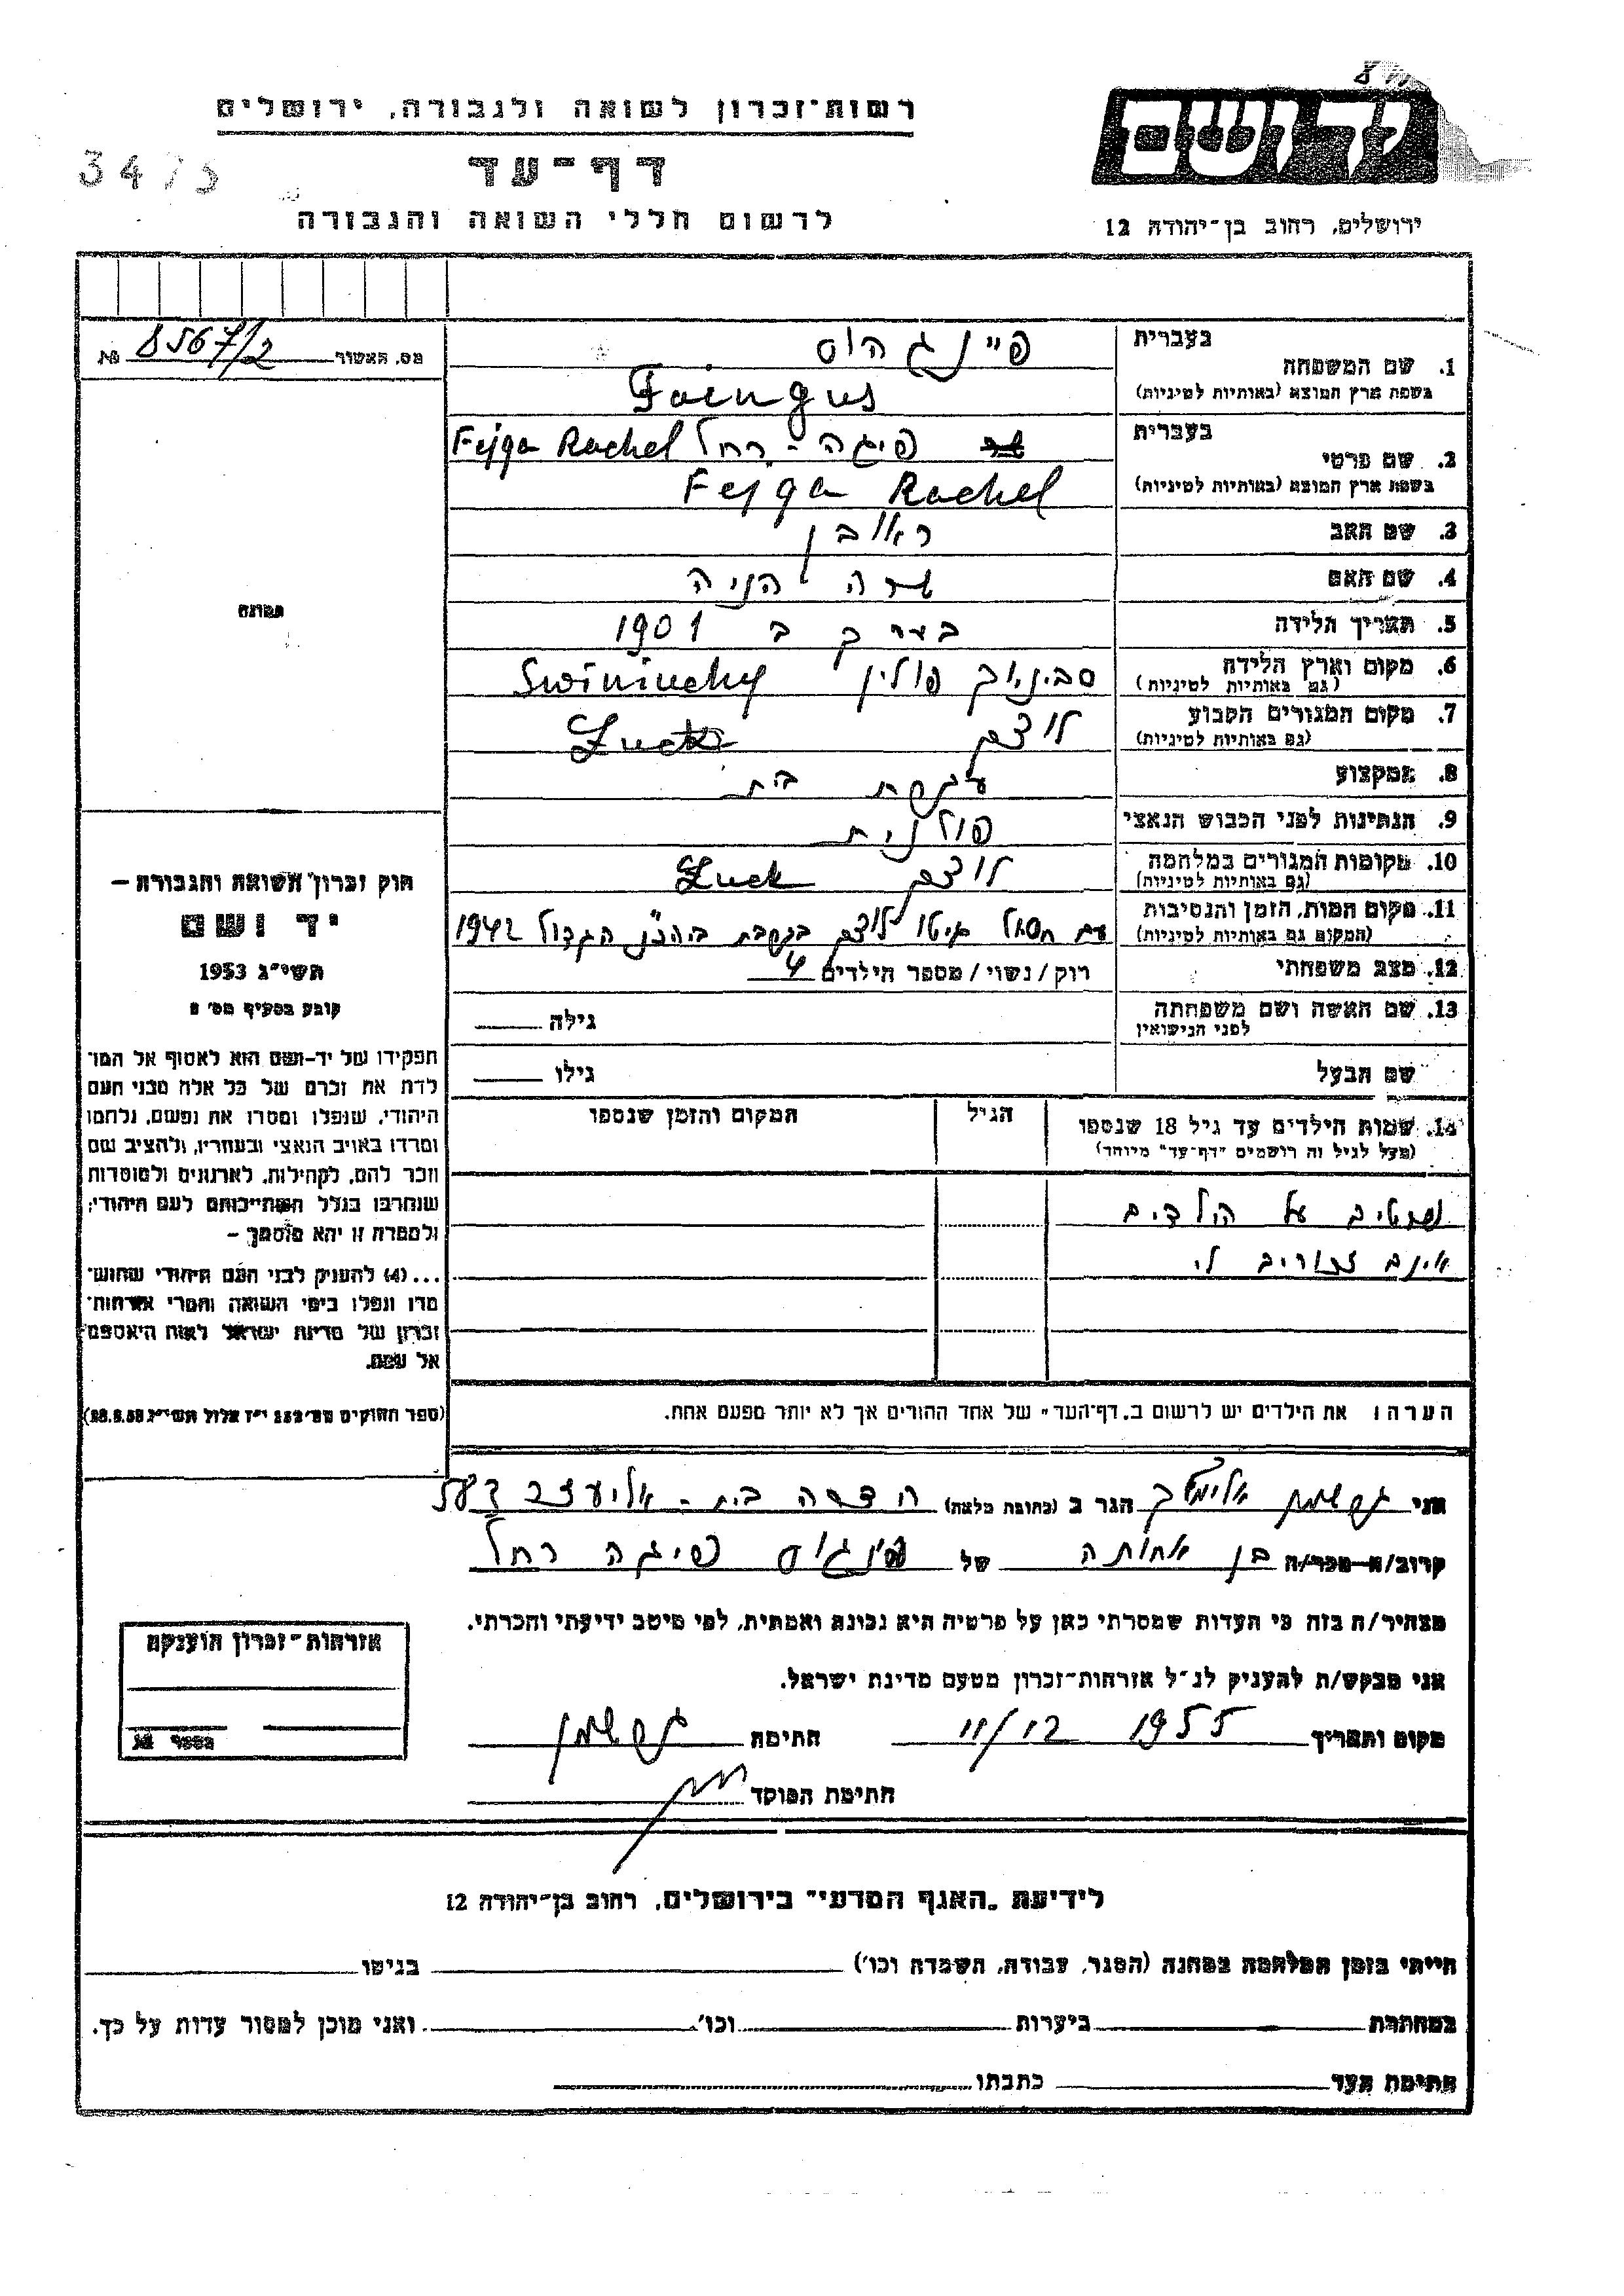 רשות־זכרון לשואה ולגבורה, ירושלים
יד ושם
דף־עד
לרשום חללי השואה והגבורה
ירושלים, רחוב בן־יהודה 12
מס. האשור 8567/2 №
תמונה
1. שם המשפחה
בעברית
פיינגהוס
בשפת ארץ המוצא (באותיות לטיניות)
Faingus
2. שם פרטי
בעברית
פיגה - רחל Fejga Rachel
בשפת ארץ המוצא (באותיות לטיניות)
Fejga Rachel
3. שם האב
ראובן
4. שם האם
שרה הניה
5. תאריך הלידה
בערך ב 1901
6. מקום וארץ הלידה
(גם באותיות לטיניות)
פולין Swiniuchy
7. מקום המגורים הקבוע
(גם באותיות לטיניות)
לוצק Luck
8. המקצוע
עקרת בית
9. הנתינות לפני הכבוש הנאצי
פולנית
10. מקומות המגורים במלחמה
(גם באותיות לטיניות)
לוצק Luck
11. מקום המות, הזמן והנסיבות
(המקום גם באותיות לטיניות)
עם חסול גיטו לוצק בקרבת ביהכ"נ הגדול 1942
12. מצב משפחתי
רוק/נשוי/מספר הילדים 4
13. שם האשה ושם משפחתה
לפני הנישואין
גילה
שם הבעל
גילו
14. שמות הילדים עד גיל 18 שנספו
(מעל לגיל זה רושמים "דף־עד" מיוחד)
הגיל
המקום והזמן שנספו
פרטים על הילדים
אינם זכורים לי
הערה: את הילדים יש לרשום ב„דף־העד" של אחד ההורים אך לא יותר מפעם אחת.
חוק זכרון השואה והגבורה –
יד ושם
תשי"ג 1953
קובע בסעיף מס'
תפקידו של יד-ושם הוא לאסוף אל המו־
לדת את זכרם של כל אלה מבני העם
היהודי, שנפלו ומסרו את נפשם, נלחמו
ומרדו באויב הנאצי ובעוזריו, ולהציב שם
וזכר להם, לקהילות, לארגונים ולמוסדות
שנחרבו בגלל השתייכותם לעם היהודי;
ולמטרה זו יהא מוסמך –
...(4) להעניק לבני העם היהודי שהוש־
מדו ונפלו בימי השואה והמרי אזרחות־
זכרון של מדינת ישראל לאות היאספם
אל עמם.
(ספר החוקים מס' 132 י"ז אלול תשי"ג 28.8.53)
אני הגר ב (כתובת מלאה) הדסה בית - אליעזר
קרוב/ה מכר/ה בן אחותה של פיגה רחל
מצהיר/ה בזה כי העדות שמסרתי כאן על פרטיה היא נכונה ואמתית, לפי מיטב ידיעתי והכרתי.
אני מבקש/ת להעניק לנ"ל אזרחות־זכרון מטעם מדינת ישראל.
מקום ותאריך 11/12 1955 חתימה
חתימת הפוקד
אזרחות־זכרון הוענקה
מספר №
לידיעת „האגף המדעי" בירושלים, רחוב בן־יהודה 12
הייתי בזמן המלחמה במחנה (הסגר, עבודה, השמדה וכו') בגיטו
במחתרת ביערות וכו' ואני מוכן למסור עדות על כך.
חתימת העד כתבתו